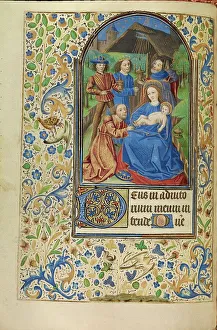 Deus in adiuto
rium meum in
tende Die